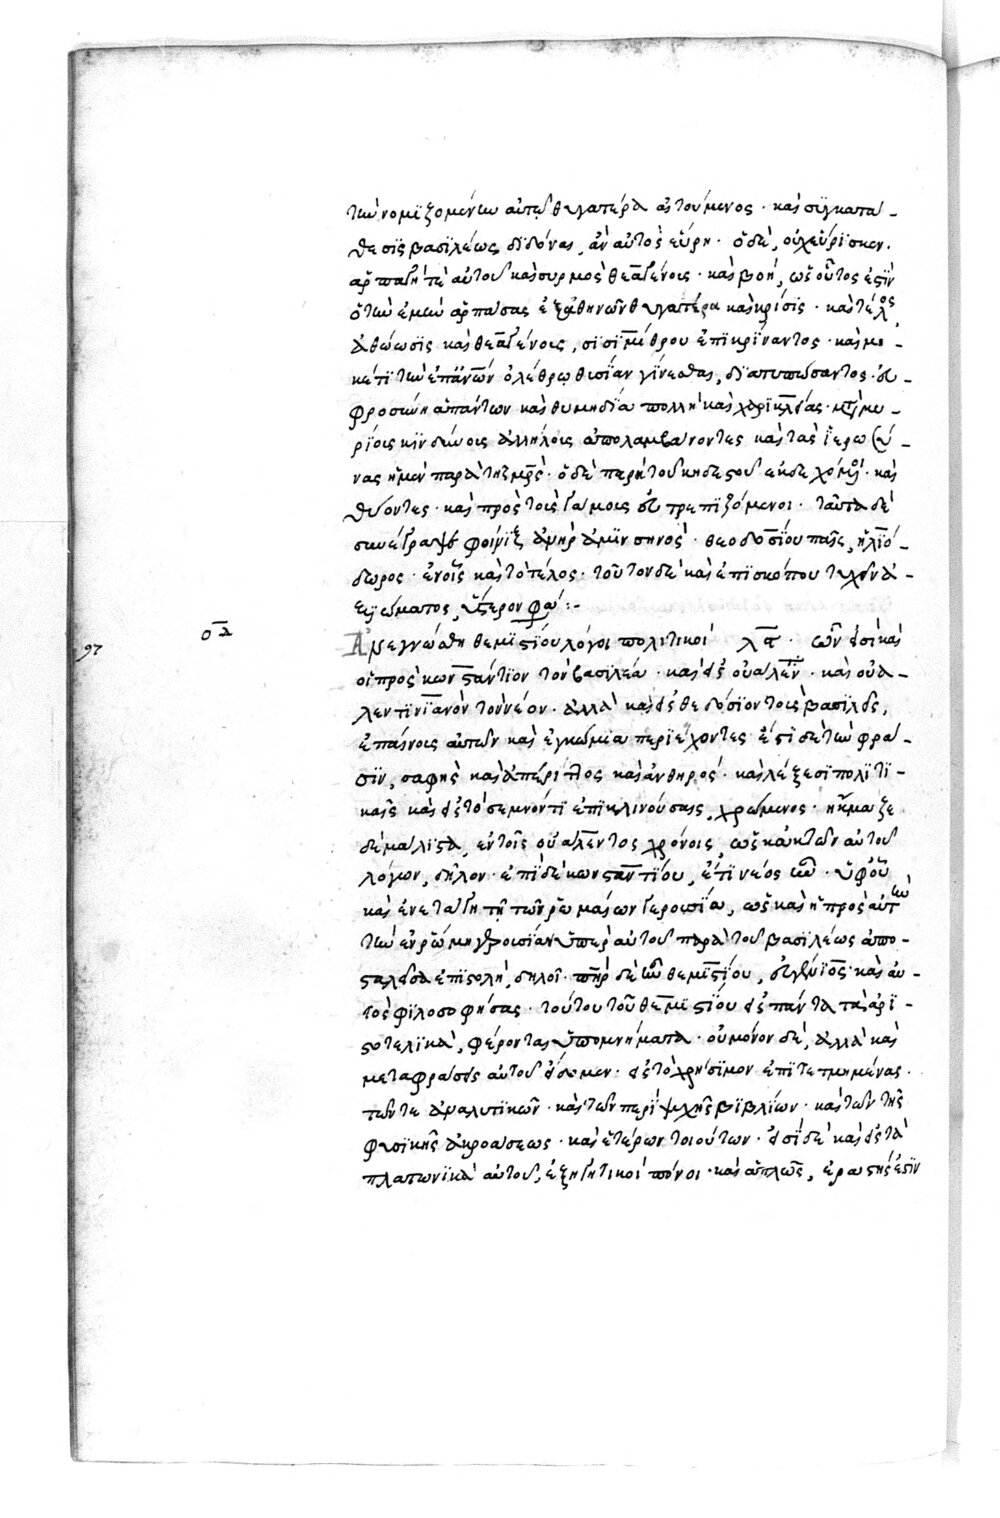 τὴν νομιζομένην αὐτῷ θυγατέρα αἰτούμενος · καὶ συγκατά-
θεσις βασιλέως διδόναι, ἂν αὐτὸς εὕρῃ · ὁ δὲ, οὐχ εὕρισκεν.
ἁρπαγή τε αὐτοῦ καὶ συρμὸς θεαγένοις · καὶ βοὴ, ὡς οὗτος ἐστὶν
ὁ τὴν ἐμὴν ἁρπάσας ἐξ ἀθηνῶν θυγατέρα καὶ κρίσις · καὶ τέλος
ἀθώωσις καὶ θεαγένοις, σισιμίθρου ἐπικρίναντος · καὶ μη-
κέτι τὴν ἐπ' ἀνῶν ὀλέθρῳ θυσίαν γίνεσθαι, διατυπώσαντος · εὐ-
φροσύνη ἁπάντων καὶ θυμηδία πολλὴ καὶ χαρικλείας · μετὰ μυ-
ρίοις κινδύνοις ἀλλήλοις ἀπολαμβάνοντες καὶ τὰς ἱερωσύ-
νας ἡ μὲν παρὰ τῆς μρς · ὁ δὲ παρὰ τοῦ κηδεστοῦ ἐκδεχόμενοι · καὶ
θύοντες · καὶ πρὸς τοῖς γάμοις εὐτρεπιζόμενοι · ταῦτα δὲ
συνέγραψε φοίνιξ ἀνὴρ ἀμινσηνὸς · θεοδοσίου παῖς, ἡλιό-
δωρος · ἐν οἷς καὶ τὸ τέλος · τοῦτον δὲ καὶ ἐπισκόπου τυχεῖν ἀ-
ξιώματος, ὕστερον φασί :-
οδ
97
Ἀνεγνώσθη θεμιστίου λόγοι πολιτικοὶ λς · ὧν εἰσὶ καὶ
οἱ πρὸς κωνστάντιον τὸν βασιλέα · καὶ εἰς οὐάλεντα · καὶ οὐα-
λεντινιανὸν τὸν νέον · ἀλλὰ καὶ εἰς θεοδόσιον τοὺς βασιλεῖς,
ἐπαίνοις αὐτῶν καὶ ἐγκώμια περιέχοντες ἔστι δὲ τὴν φρά-
σιν, σαφὴς καὶ ἀπέριττος καὶ ἀνθηρὸς · καὶ λέξεσι πολιτι-
καῖς καὶ εἰς τὸ σεμνόν τι ἐπικλινούσαις, χρώμενος · ἤκμαζε
δὲ μάλιστα, ἐν τοῖς οὐάλεντος χρόνοις, ὡς κἀκ τῶν αὐτοῦ
λόγων, δῆλον · ἐπὶ δὲ κωνσταντίου, ἔτι νέος ὢν · ὑφ' οὗ
καὶ ἐνετάγη τῇ τῶν ῥωμαίων γερουσίᾳ, ὡς καὶ ἡ πρὸς αὐτὴν
τὴν ἐν ῥώμῃ γερουσίαν ὑπὲρ αὐτοῦ παρὰ τοῦ βασιλέως ἀπο-
σταλεῖσα ἐπιστολὴ, δηλοῖ · πῆρ δὲ ἦν θεμιστίου, εὐγένιος · καὶ αὐ-
τὸς φιλοσοφήσας · τούτου τοῦ θεμιστίου εἰς πάντα τὰ ἀρι-
στοτελικὰ, φέρονται ὑπομνήματα · οὐ μόνον δὲ, ἀλλὰ καὶ
μεταφράσεις αὐτοῦ εἴδομεν · εἰς τὸ χρήσιμον ἐπιτετμημένας ·
τῶν τε ἀναλυτικῶν · καὶ τῶν περὶ ψυχῆς βιβλίων · καὶ τῶν τῆς
φυσικῆς ἀκροάσεως · καὶ ἑτέρων τοιούτων · εἰσὶ δὲ καὶ εἰς τὰ
πλατωνικὰ αὐτοῦ, ἐξηγητικοὶ πόνοι · καὶ ἁπλῶς, ἐραστής ἐστιν